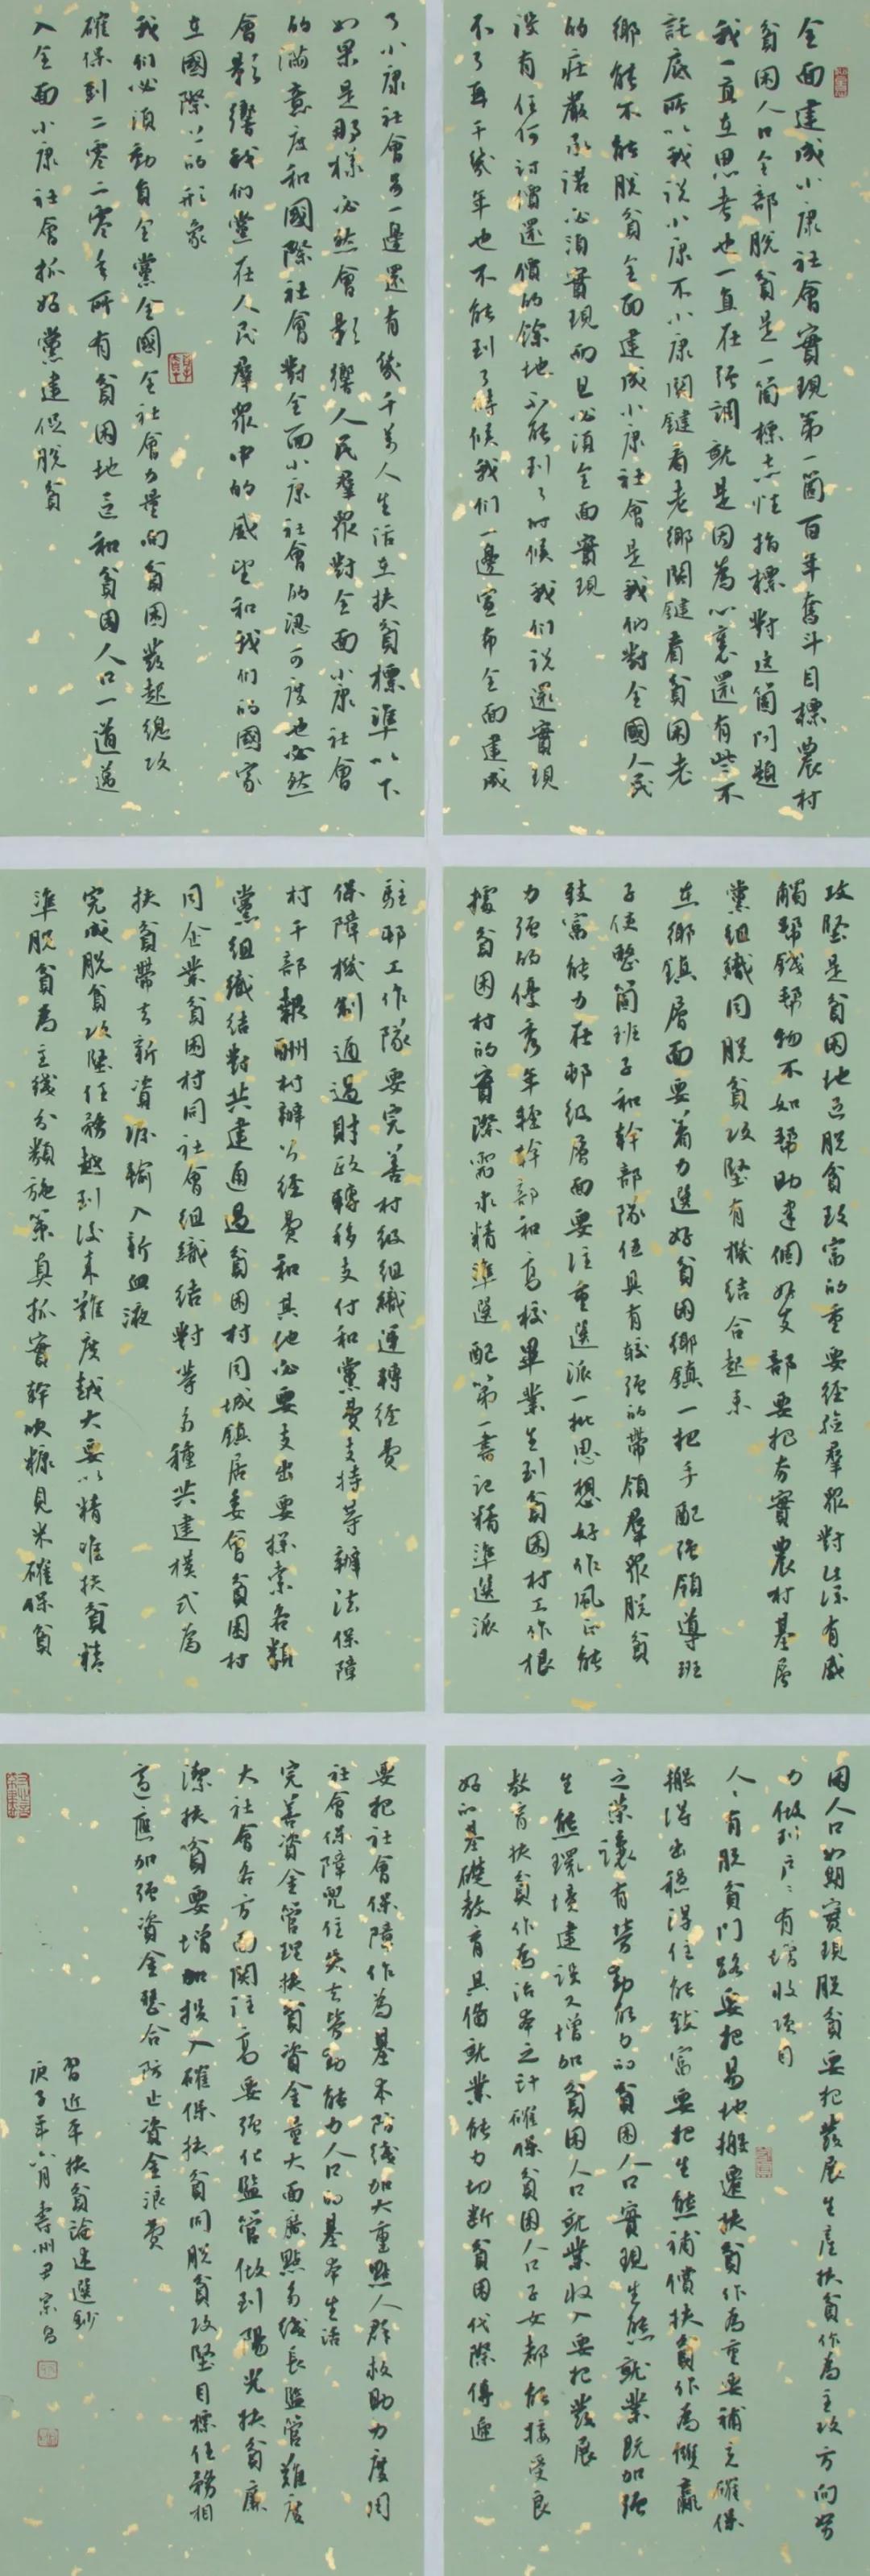 全面建成小康社會實現第一箇百年奮斗目標農村
貧困人口全部脫貧是一箇標志性指標對這箇問題
我一直在思考也一直在强調就是因為心裏還有些不
託底所以我説小康不小康関鍵看老鄉関鍵看貧困老
鄉能不能脫貧全面建成小康社會是我們對全國人民
的莊嚴承諾必須實現而且必須全面實現
没有任何討價還價的餘地不能到了时候我们说還實現
不了再干幾年也不能到了時候我们一邊宣布全面建成
了小康社會另一邊還有幾千萬人生活在扶貧標準以下
如果是那樣必然會影響人民羣眾對全面小康社會
的滿意度和國際社會對全面小康社會的認可度也必然
會影響我们黨在人民羣眾中的威望和我们的國家
在國際上的形象
我们必須動員全黨全國全社會力量向貧困發起總攻
確保到二零二零年所有貧困地區和貧困人口一道邁
入全面小康社會抓好黨建促脫貧
攻堅是貧困地區脫貧致富的重要經驗羣眾對此深有感
觸幫錢幫物不如幫助建個好支部要把夯實農村基層
黨組織同脫貧攻堅有機結合起来
在鄉鎮層面要着力選好貧困鄉鎮一把手配强領導班
子使整箇班子和幹部隊伍具有較强的帶領羣眾脫貧
致富能力在邨級層面要注重選派一批思想好作風正能
力强的優秀年輕幹部和高校畢業生到貧困村工作根
據貧困村的實際需求精準選配第一書記精準選派
駐邨工作隊要完善村級組織運轉經費
保障機制通過財政轉移支付和黨費支持等辦法保障
村干部報酬村辦公經費和其他必要支出要探索各類
黨組織結對共建通過貧困村同城鎮居委會貧困村
同企業貧困村同社會組織結對等多種共建模式為
扶貧帶去新資源輸入新血液
完成脫貧攻堅任務越到後来難度越大要以精准扶貧精
準脫貧為主綫分類施策真抓實幹吹糠見米確保貧
困人口如期實現脫貧要把發展生產扶貧作為主攻方向努
力做到户〻有增收项目
人〻有脫貧門路要把易地搬遷扶貧作為重要補充確保
搬得出穩得住能致富要把生態補償扶貧作為雙贏
之策讓有勞動能力的貧困人口實現生態就業既加强
生態環境建設又增加貧困人口就業收入要把發展
教育扶貧作為治本之計確保貧困人口子女都能接受良
好的基礎教育具備就業能力切斷貧困代際傳遞
要把社會保障作為基本防綫加大重點人群救助力度用
社會保障兜住失去勞動能力人口的基本生活
完善資金管理扶貧資金量大面廣點多綫長監管難度
大社會各方面関注高要强化監管做到陽光扶貧廉
潔扶貧要增加投入確保扶貧同脫貧攻堅目標任務相
適應加强資金整合防止資金浪費
習近平扶貧論述選鈔
庚子年六月壽州尹宗昌